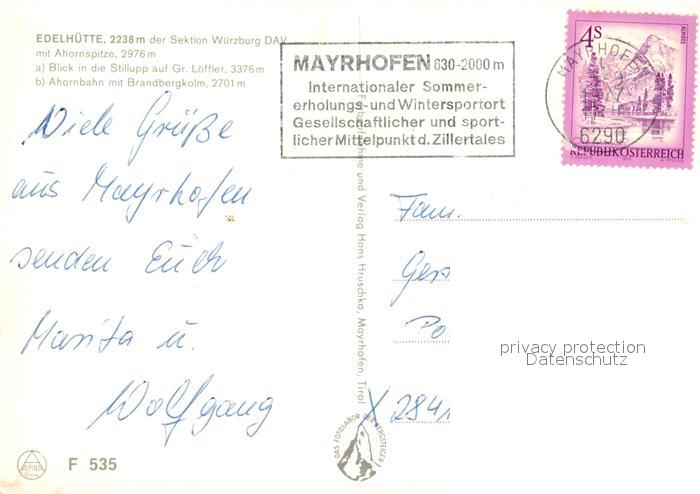 EDELHÜTTE, 2238 m der Sektion Würzburg DAV
mit Ahornspitze, 2976 m
a) Blick in die Stillupp auf Gr. Löffler, 3376 m
b) Ahornbahn mit Brandbergkolm, 2701 m
MAYRHOFEN 630-2000 m
Internationaler Sommer-
erholungs- und Wintersportort
Gesellschaftlicher und sport-
licher Mittelpunkt d. Zillertales
4S
ALMSEE
MAYRHOFEN
6290
REPUBLIK ÖSTERREICH
Viele Grüße
aus Mayrhofen
senden Euch
Marita u.
Wolfgang
Fam.
Ges
Po
X 284
privacy protection
Datenschutz
Farbaufnahme und Verlag Hans Hruschka, Mayrhofen, Tirol
DAS FOTOLABOR DER BERGSTEIGER
F 535